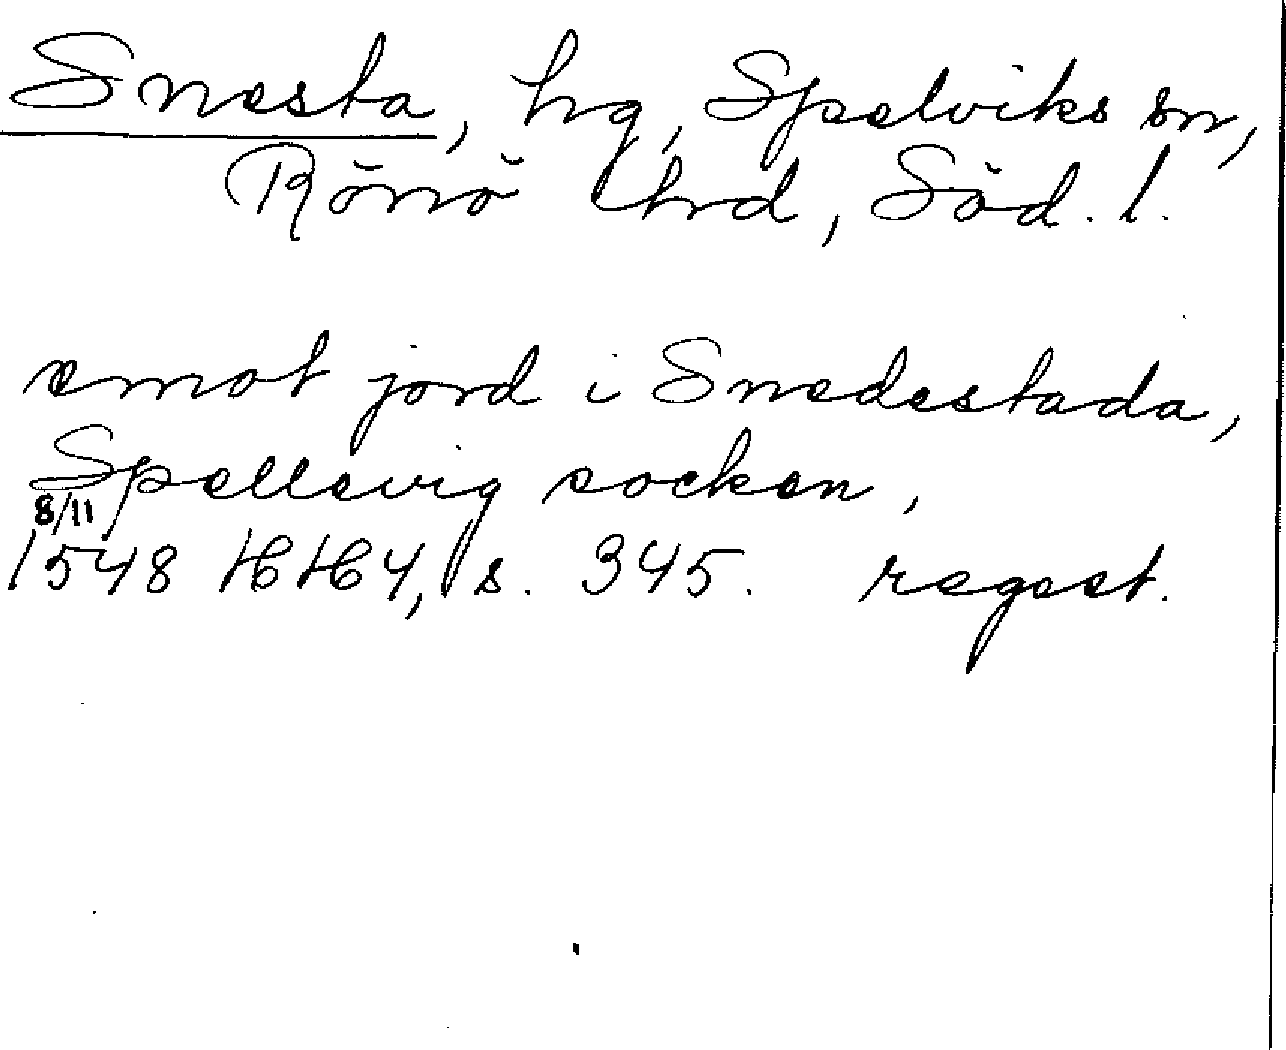 Snesta, hg, Spelviks sn,
Rönö hrd, Söd. l.
emot jord i Snedestada,
Spellevig socken,
8/11
1548 HH4, s. 345. regest.